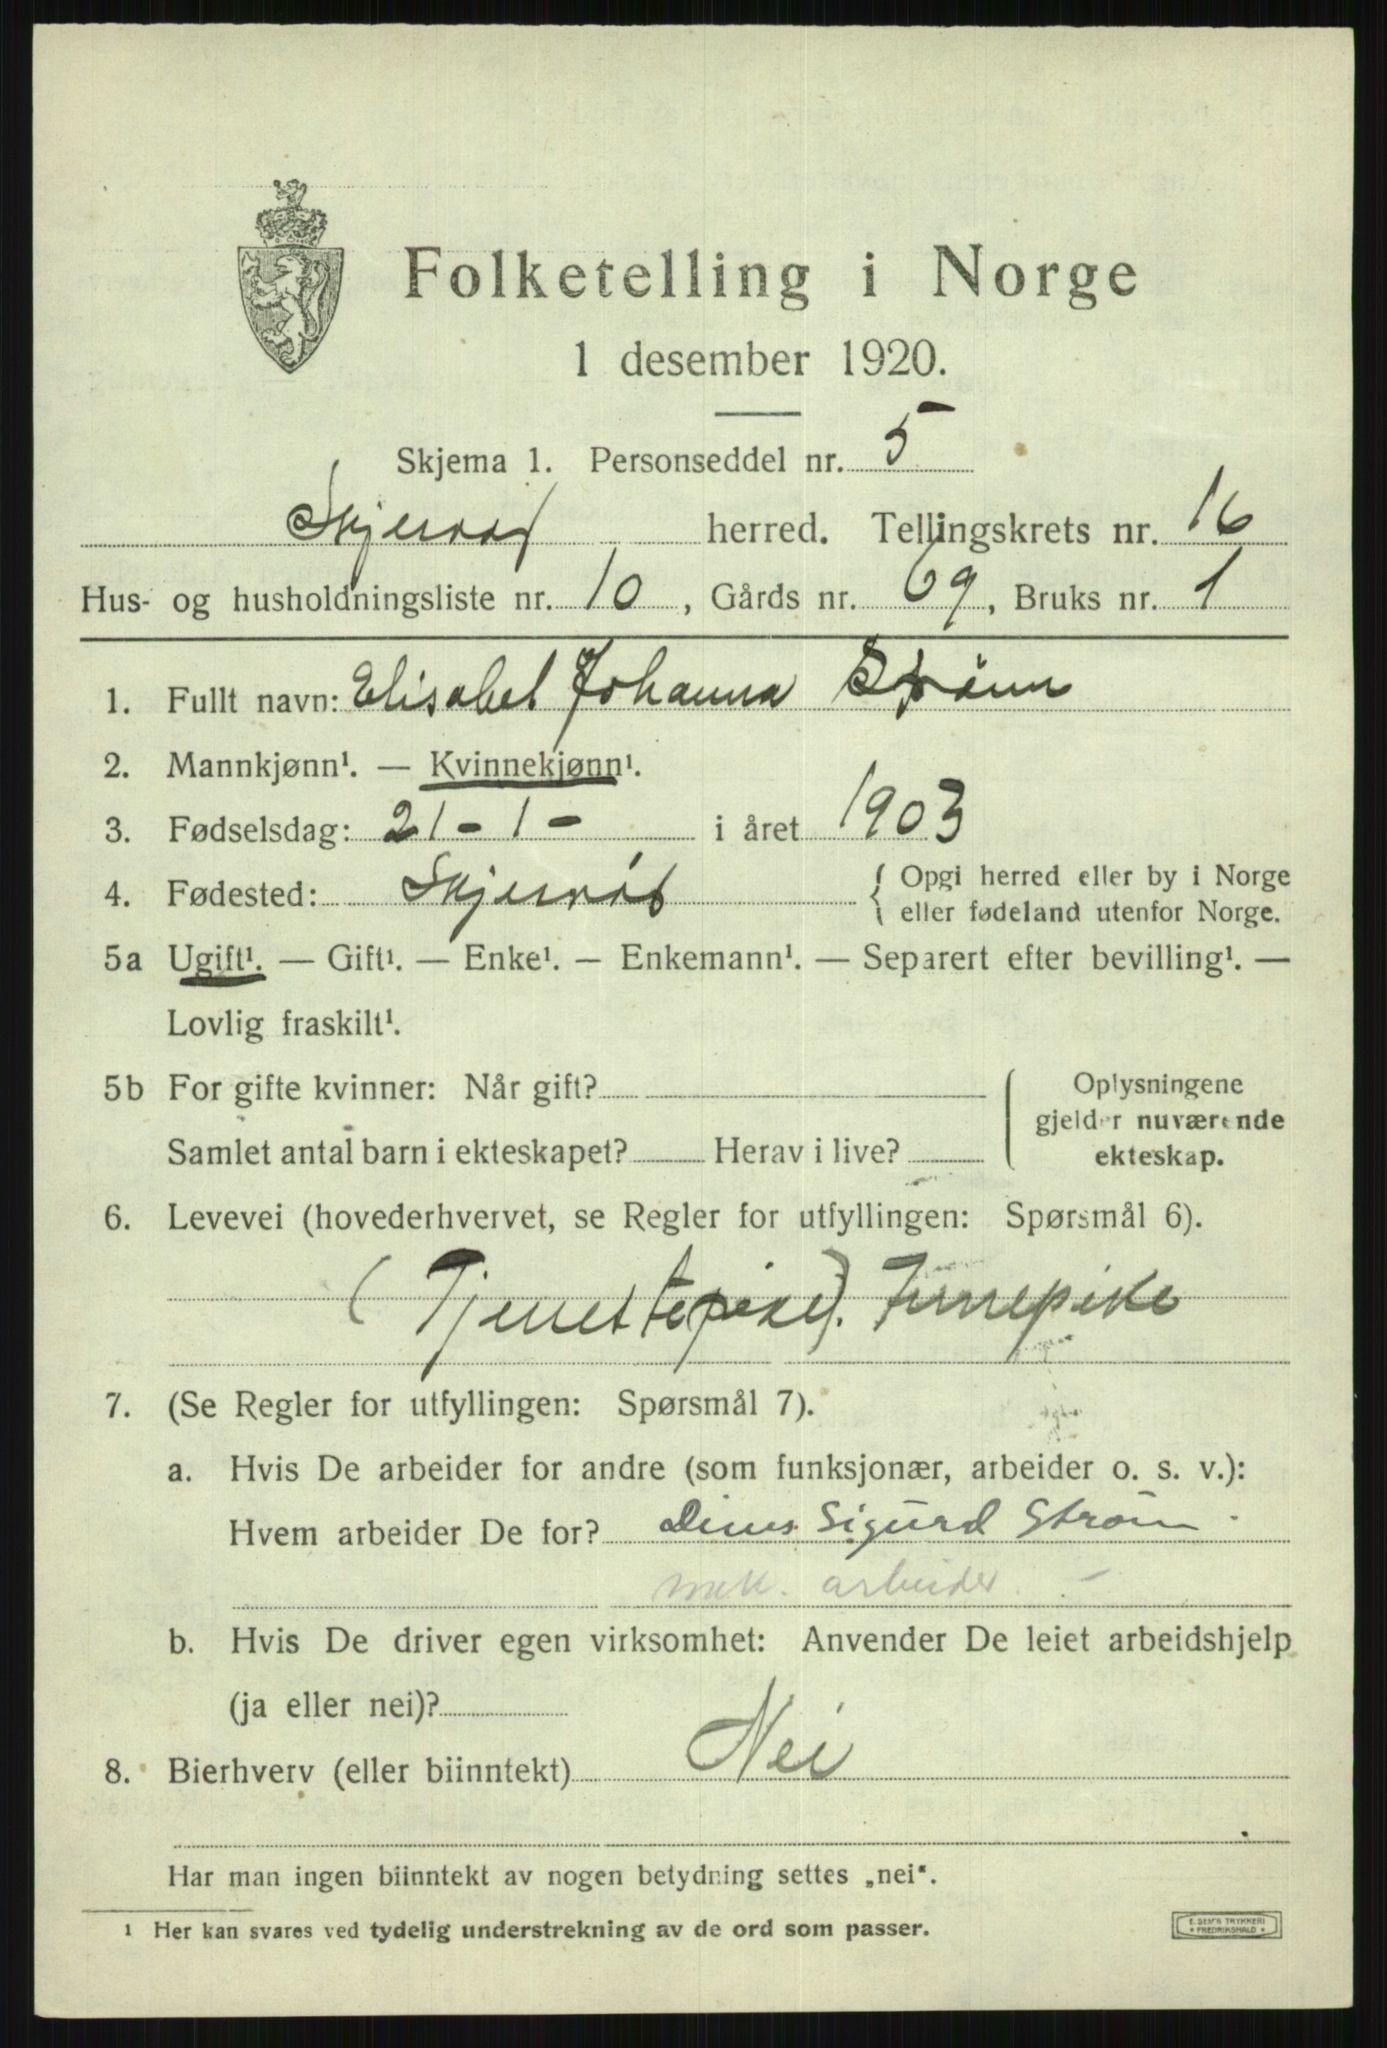 Folketelling i Norge
1 desember 1920.
Skjema 1. Personseddel nr. 5
Skjervøy herred. Tellingskrets nr. 16
Hus- og husholdningsliste nr. 10, Gårds nr. 69, Bruks nr. 1
1. Fullt navn: Elisabet Johanna Strøm
2. Mannkjønn¹. — Kvinnekjønn¹.
3. Fødselsdag: 21-1- i året 1903
4. Fødested: Skjervöy { Opgi herred eller by i Norge
eller fødeland utenfor Norge.
5a Ugift¹. — Gift¹. — Enke¹. — Enkemann¹. — Separert efter bevilling¹. —
Lovlig fraskilt¹.
5b For gifte kvinner: Når gift?
Samlet antal barn i ekteskapet? Herav i live?
Oplysningene
gjelder nuværende
ekteskap.
6. Levevei (hovederhvervet, se Regler for utfyllingen: Spørsmål 6).
(Tjenestepike).
7. (Se Regler for utfyllingen: Spørsmål 7).
a. Hvis De arbeider for andre (som funksjonær, arbeider o. s. v.):
Hvem arbeider De for? Sigurd Strøm
arbeider.
b. Hvis De driver egen virksomhet: Anvender De leiet arbeidshjelp
(ja eller nei)?
8. Bierhverv (eller biinntekt) Nei
Har man ingen biinntekt av nogen betydning settes „nei".
¹ Her kan svares ved tydelig understrekning av de ord som passer.
E. SEM'S TRYKKERI
* FREDRIKSHALD *